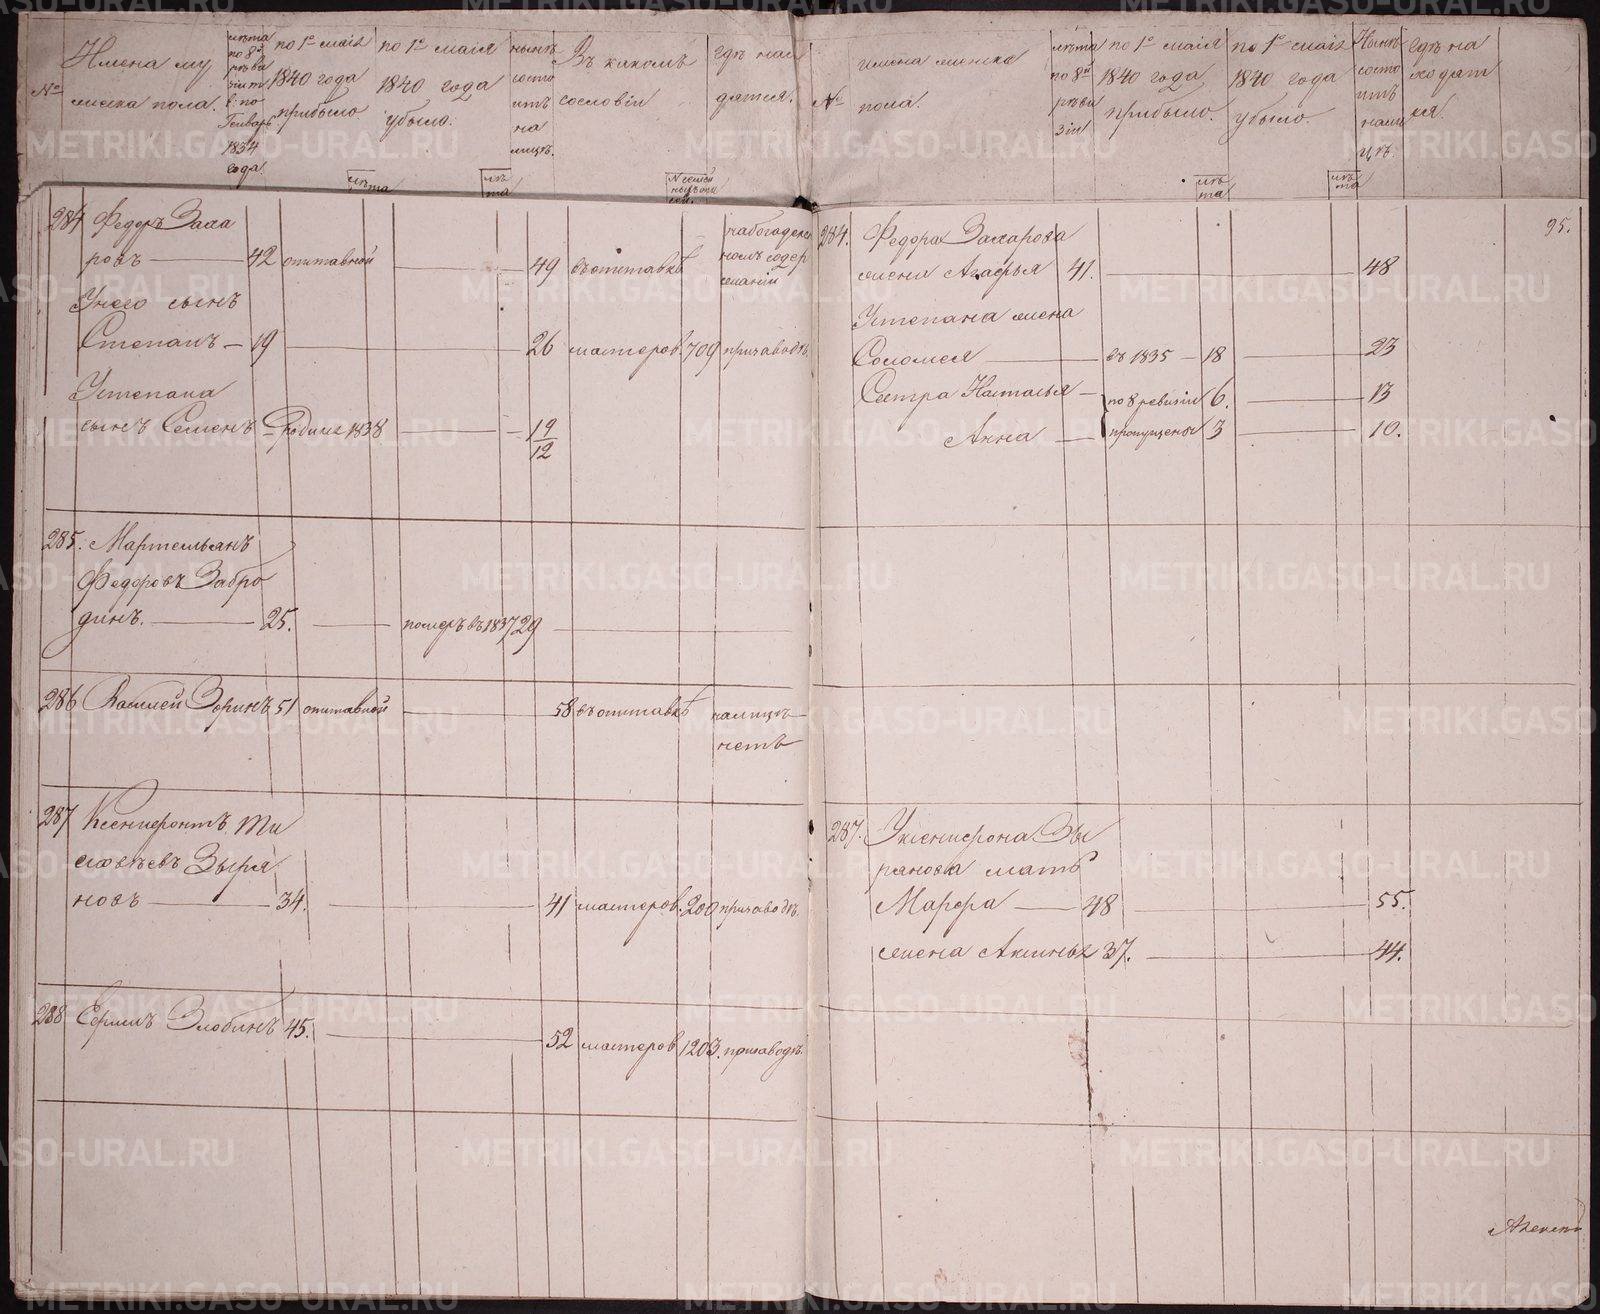 №
Имена му
жеска пола.
лѣта
по 8й
реви
зіи
к по
Генварь
1834
года.
по 1е маія
1840 года
прибыло
лѣта
по 1е маія
1840 года
убыло.
лѣ
та
нынѣ
состо
итъ
на
лицѣ.
Въ какомъ
сословіи
гдѣ нахо
дятся.
№
имена женска
пола.
лѣта
по 8й
реви
зіи
по 1е маія
1840 года
прибыло.
лѣ
та
по 1е маія
1840 года
убыло.
лѣ
та
Нынѣ
состо
итъ
нали
цѣ.
гдѣ на
ходят
ся.
284 Федоръ Заха
ровъ 42 отставной 49 въ отставкѣ
на богаденс
номъ содер
жаніи
У него сынъ
Степанъ 19 26 мастеров. 709 при заводѣ
У Степана
сынъ Семенъ Родился 1838 1 9/12
285. Мартемьянъ
Федоровъ Забро
динъ. 25. померъ въ 1837 29
286 Василей Зоринъ 51 отставной 58 въ отставкѣ на лицѣ
нетъ
287 Ксенифонтъ Ти
мофѣевъ Зыря
новъ 34. 41 мастеров. 200 при заводѣ
288 Ефимъ Злобинъ 45. 52 мастеров 1203. при заводѣ.
95.
284. Федора Захарова
жена Агафья 41. 48
У Степана жена
Соломея въ 1835 18 23
Сестра Наталья по 8 ревизіи 6. 13
Анна пропущены 3 10.
287. У Ксенифона Зы
рянова мать
Марфа 48 55.
жена Аксинья 37. 44.
METRIKI.GASO-URAL.RU